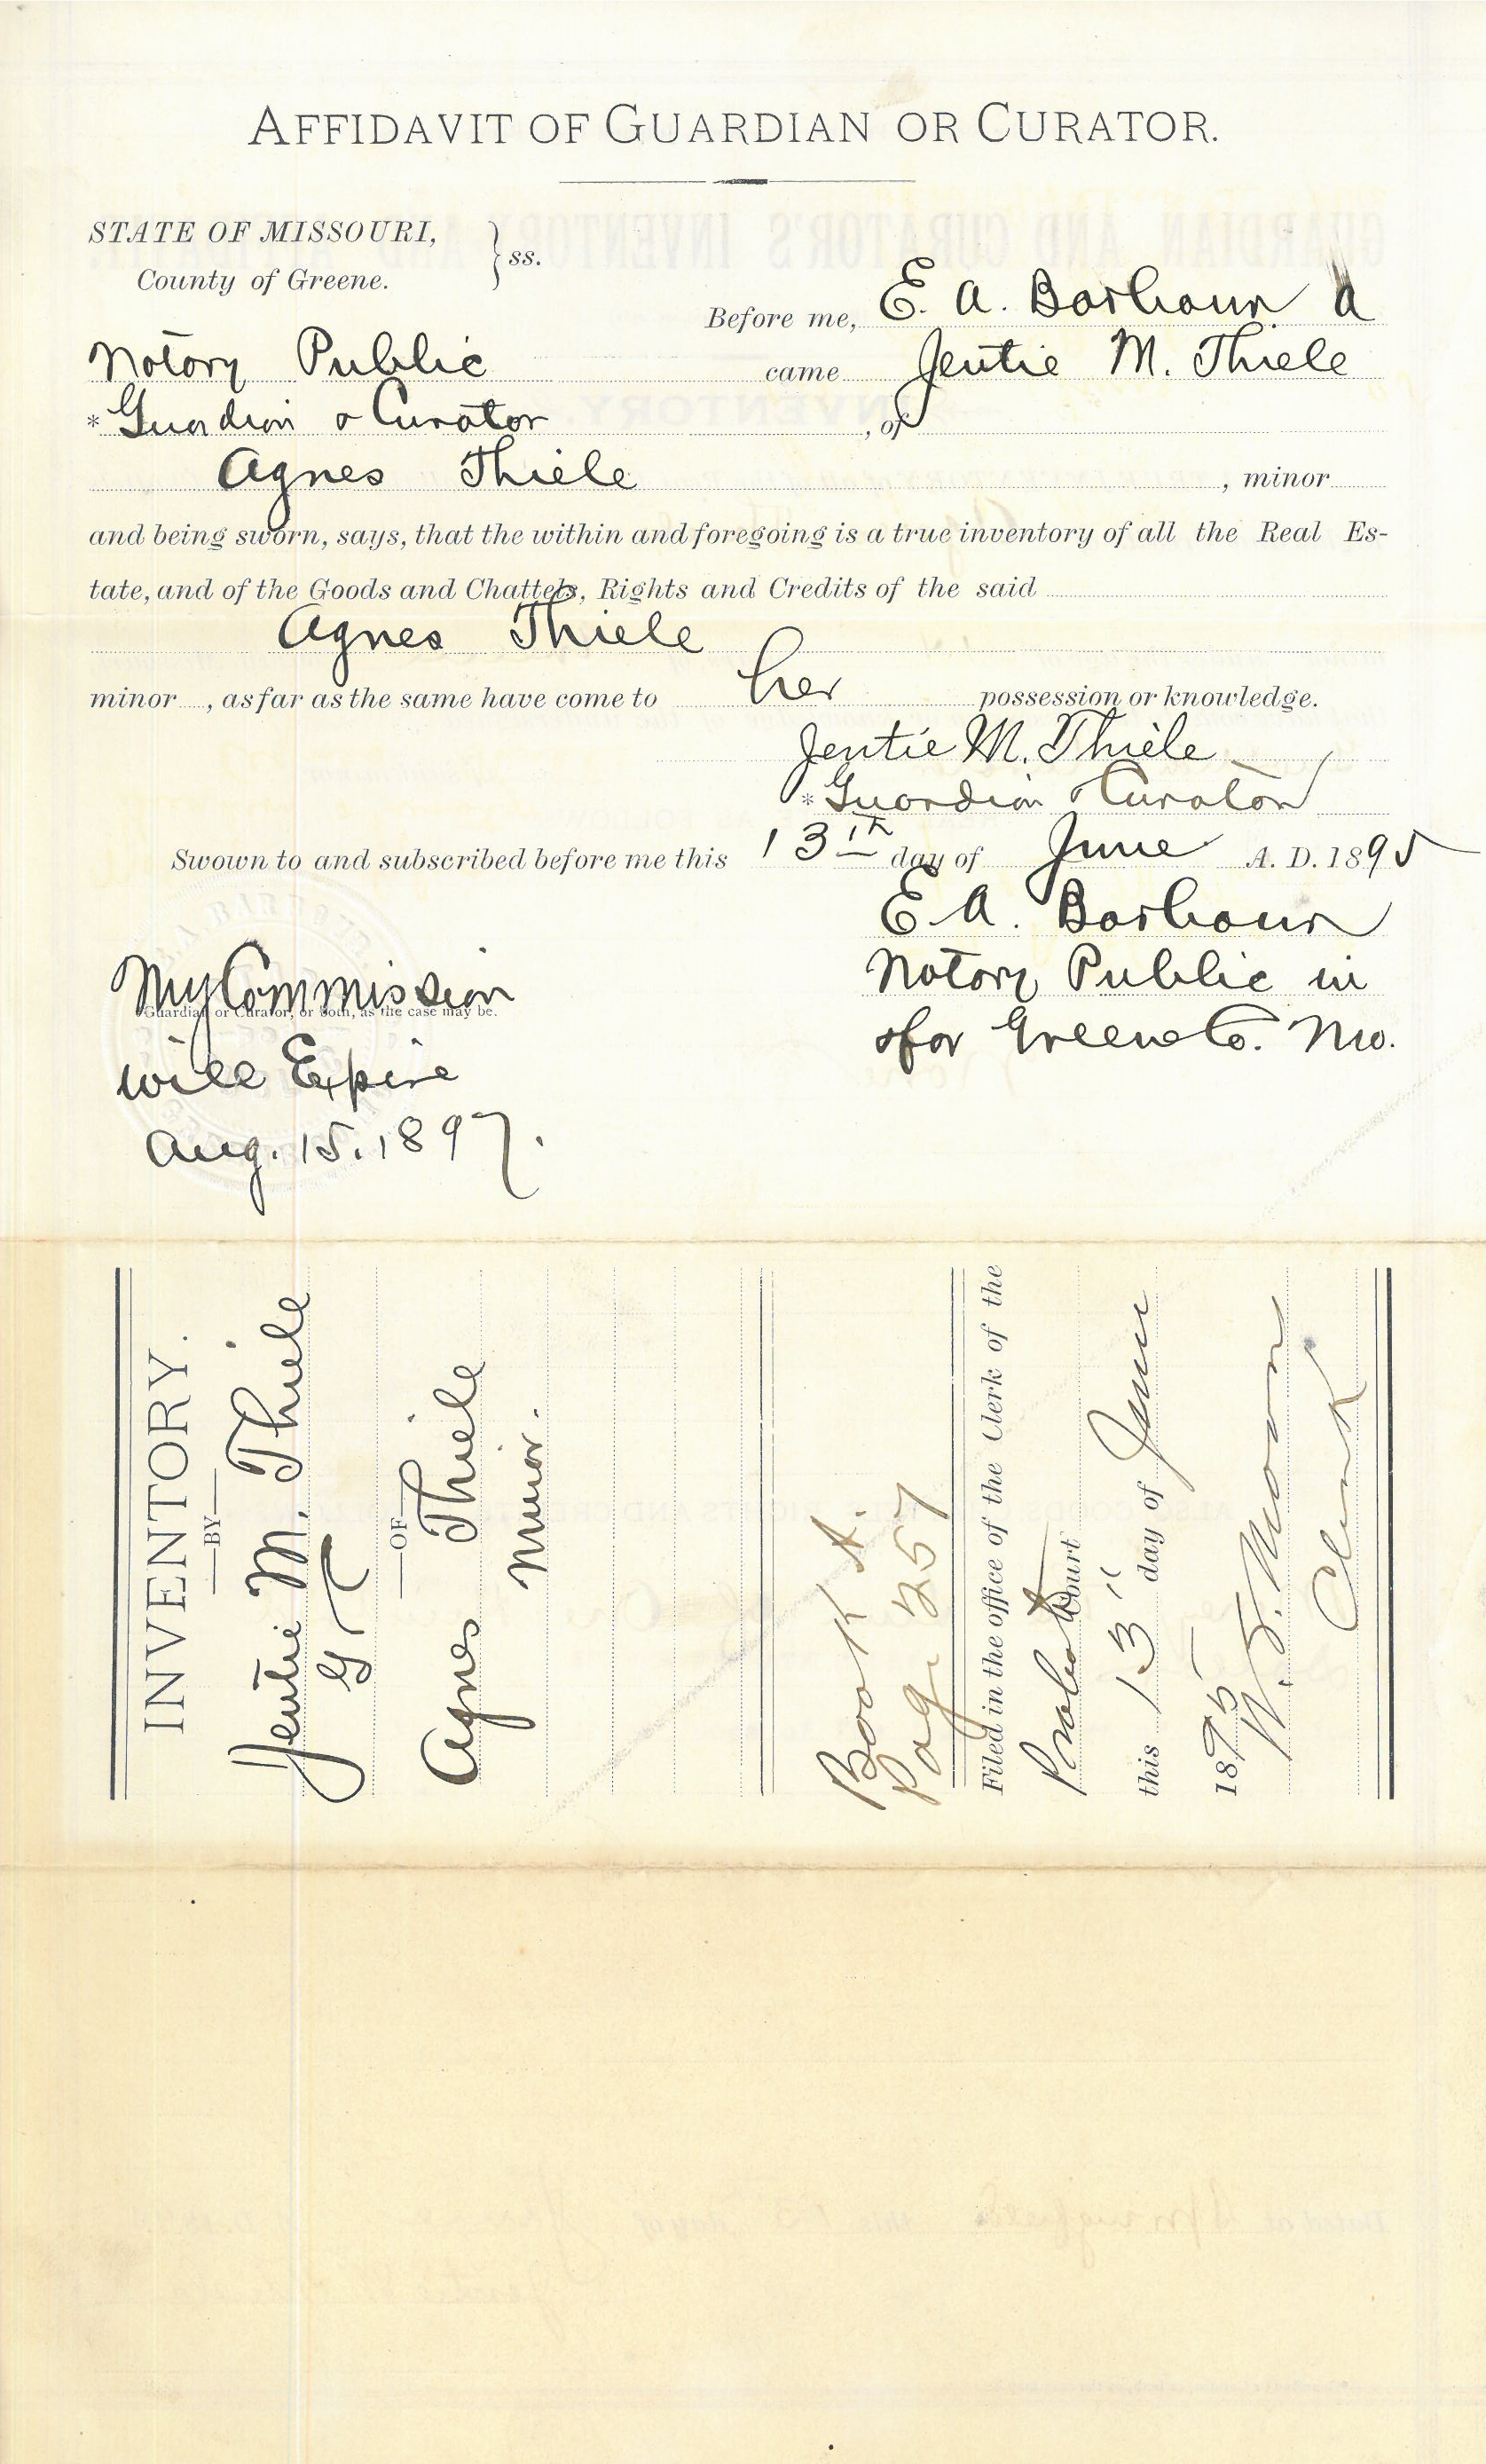 AFFIDAVIT OF GUARDIAN OR CURATOR.
STATE OF MISSOURI,
County of Greene. } ss.
Before me, E. A. Barbour a
Notary Public came Jentie M. Thiele
* Guardian & Curator , of
Agnes Thiele , minor
and being sworn, says, that the within and foregoing is a true inventory of all the Real Es-
tate, and of the Goods and Chattels, Rights and Credits of the said
Agnes Thiele
minor , as far as the same have come to her possession or knowledge.
Jentie M. Thiele
* Guardian & Curator
Swown to and subscribed before me this 13th day of June A. D. 1895
E. A. Barbour
Notary Public in
& for Greene Co. Mo.
My Commission
Guardian or Curator, or both, as the case may be.
will Expire
Aug. 15. 1897.
INVENTORY.
—BY—
Jentie M. Thiele
G C
—OF—
Agnes Thiele
Minor.
Book A.
Page 257
Filed in the office of the Clerk of the
Probate Court
this 13" day of June
1895
Clerk